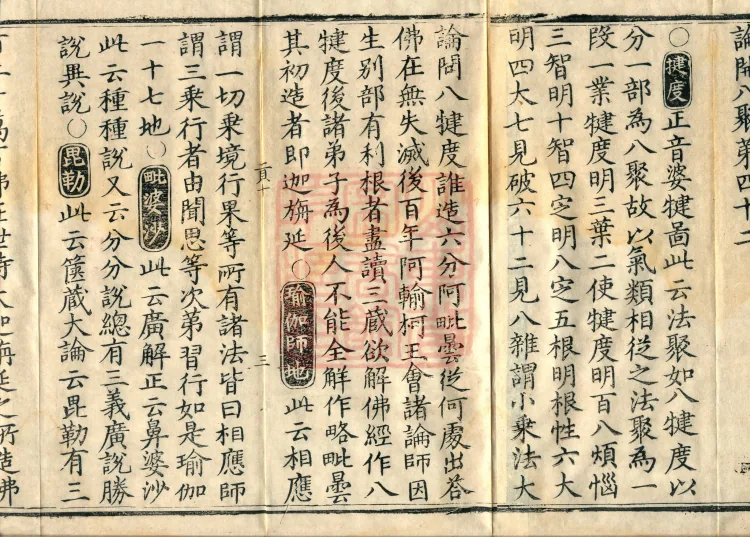 論閏八聚第四十二
○揵度正音婆犍圖此云法聚如八犍度以
分一部為八聚故以氣類相從之法聚為一
叚一業犍度明三葉二使犍度明百八煩惱
三智明十智四定明八定五根明根性六大
明四太七見破六十二見八雜謂小乗法大
論問八犍度誰造六分阿毗曇從何處出荅
佛在無失滅後百年阿輸柯王會諸論師因
生別部有利根者盡讀三蔵欲解佛經作八
犍度後諸弟子為後人不能全解作略毗曇
其初造者即迦旃延○瑜伽師地此云相應
三
謂一切乗境行果等所有諸法皆曰相應師
謂三乗行者由聞思等次第習行如是瑜伽
一十七地○毗婆沙此云廣解正云鼻婆沙
此云種種說又云分分說總有三義廣說勝
說異說○毘勒此云篋蔵大論云毘勒有三